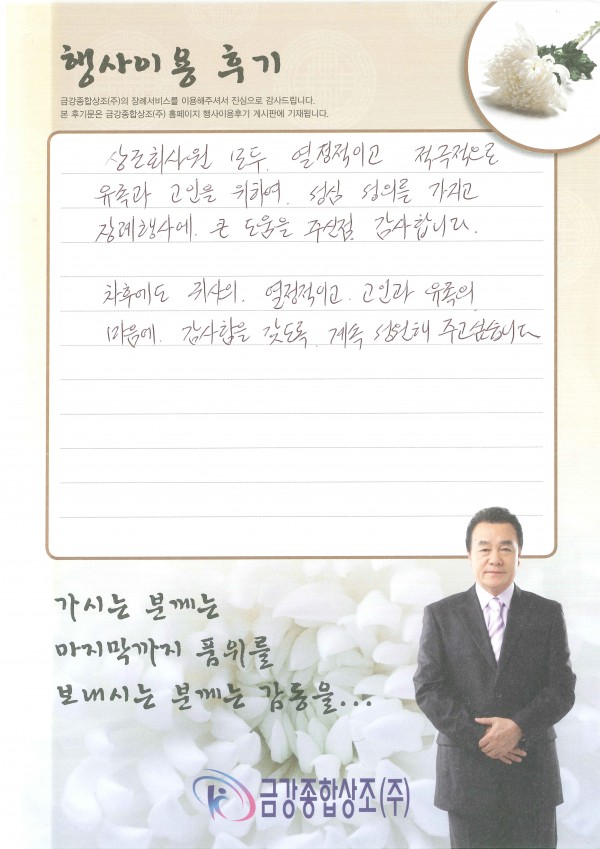 행사이용 후기
금강종합상조(주)의 장례서비스를 이용해주셔서 진심으로 감사드립니다.
본 후기문은 금강종합상조(주) 홈페이지 행사이용후기 게시판에 기재됩니다.
상조회사원 모두. 열정적이고 적극적으로
유족과 고인을 위하여. 성심 성의를 가지고
장례행사에. 큰 도움을 주신점. 감사합니다.
차후에도 귀사의. 열정적이고. 고인과 유족의.
마음에. 감사함을 갖도록. 계속 성원해 주고싶습니다
가시는 분께는
마지막까지 품위를
보내시는 분께는 감동을...
금강종합상조(주)